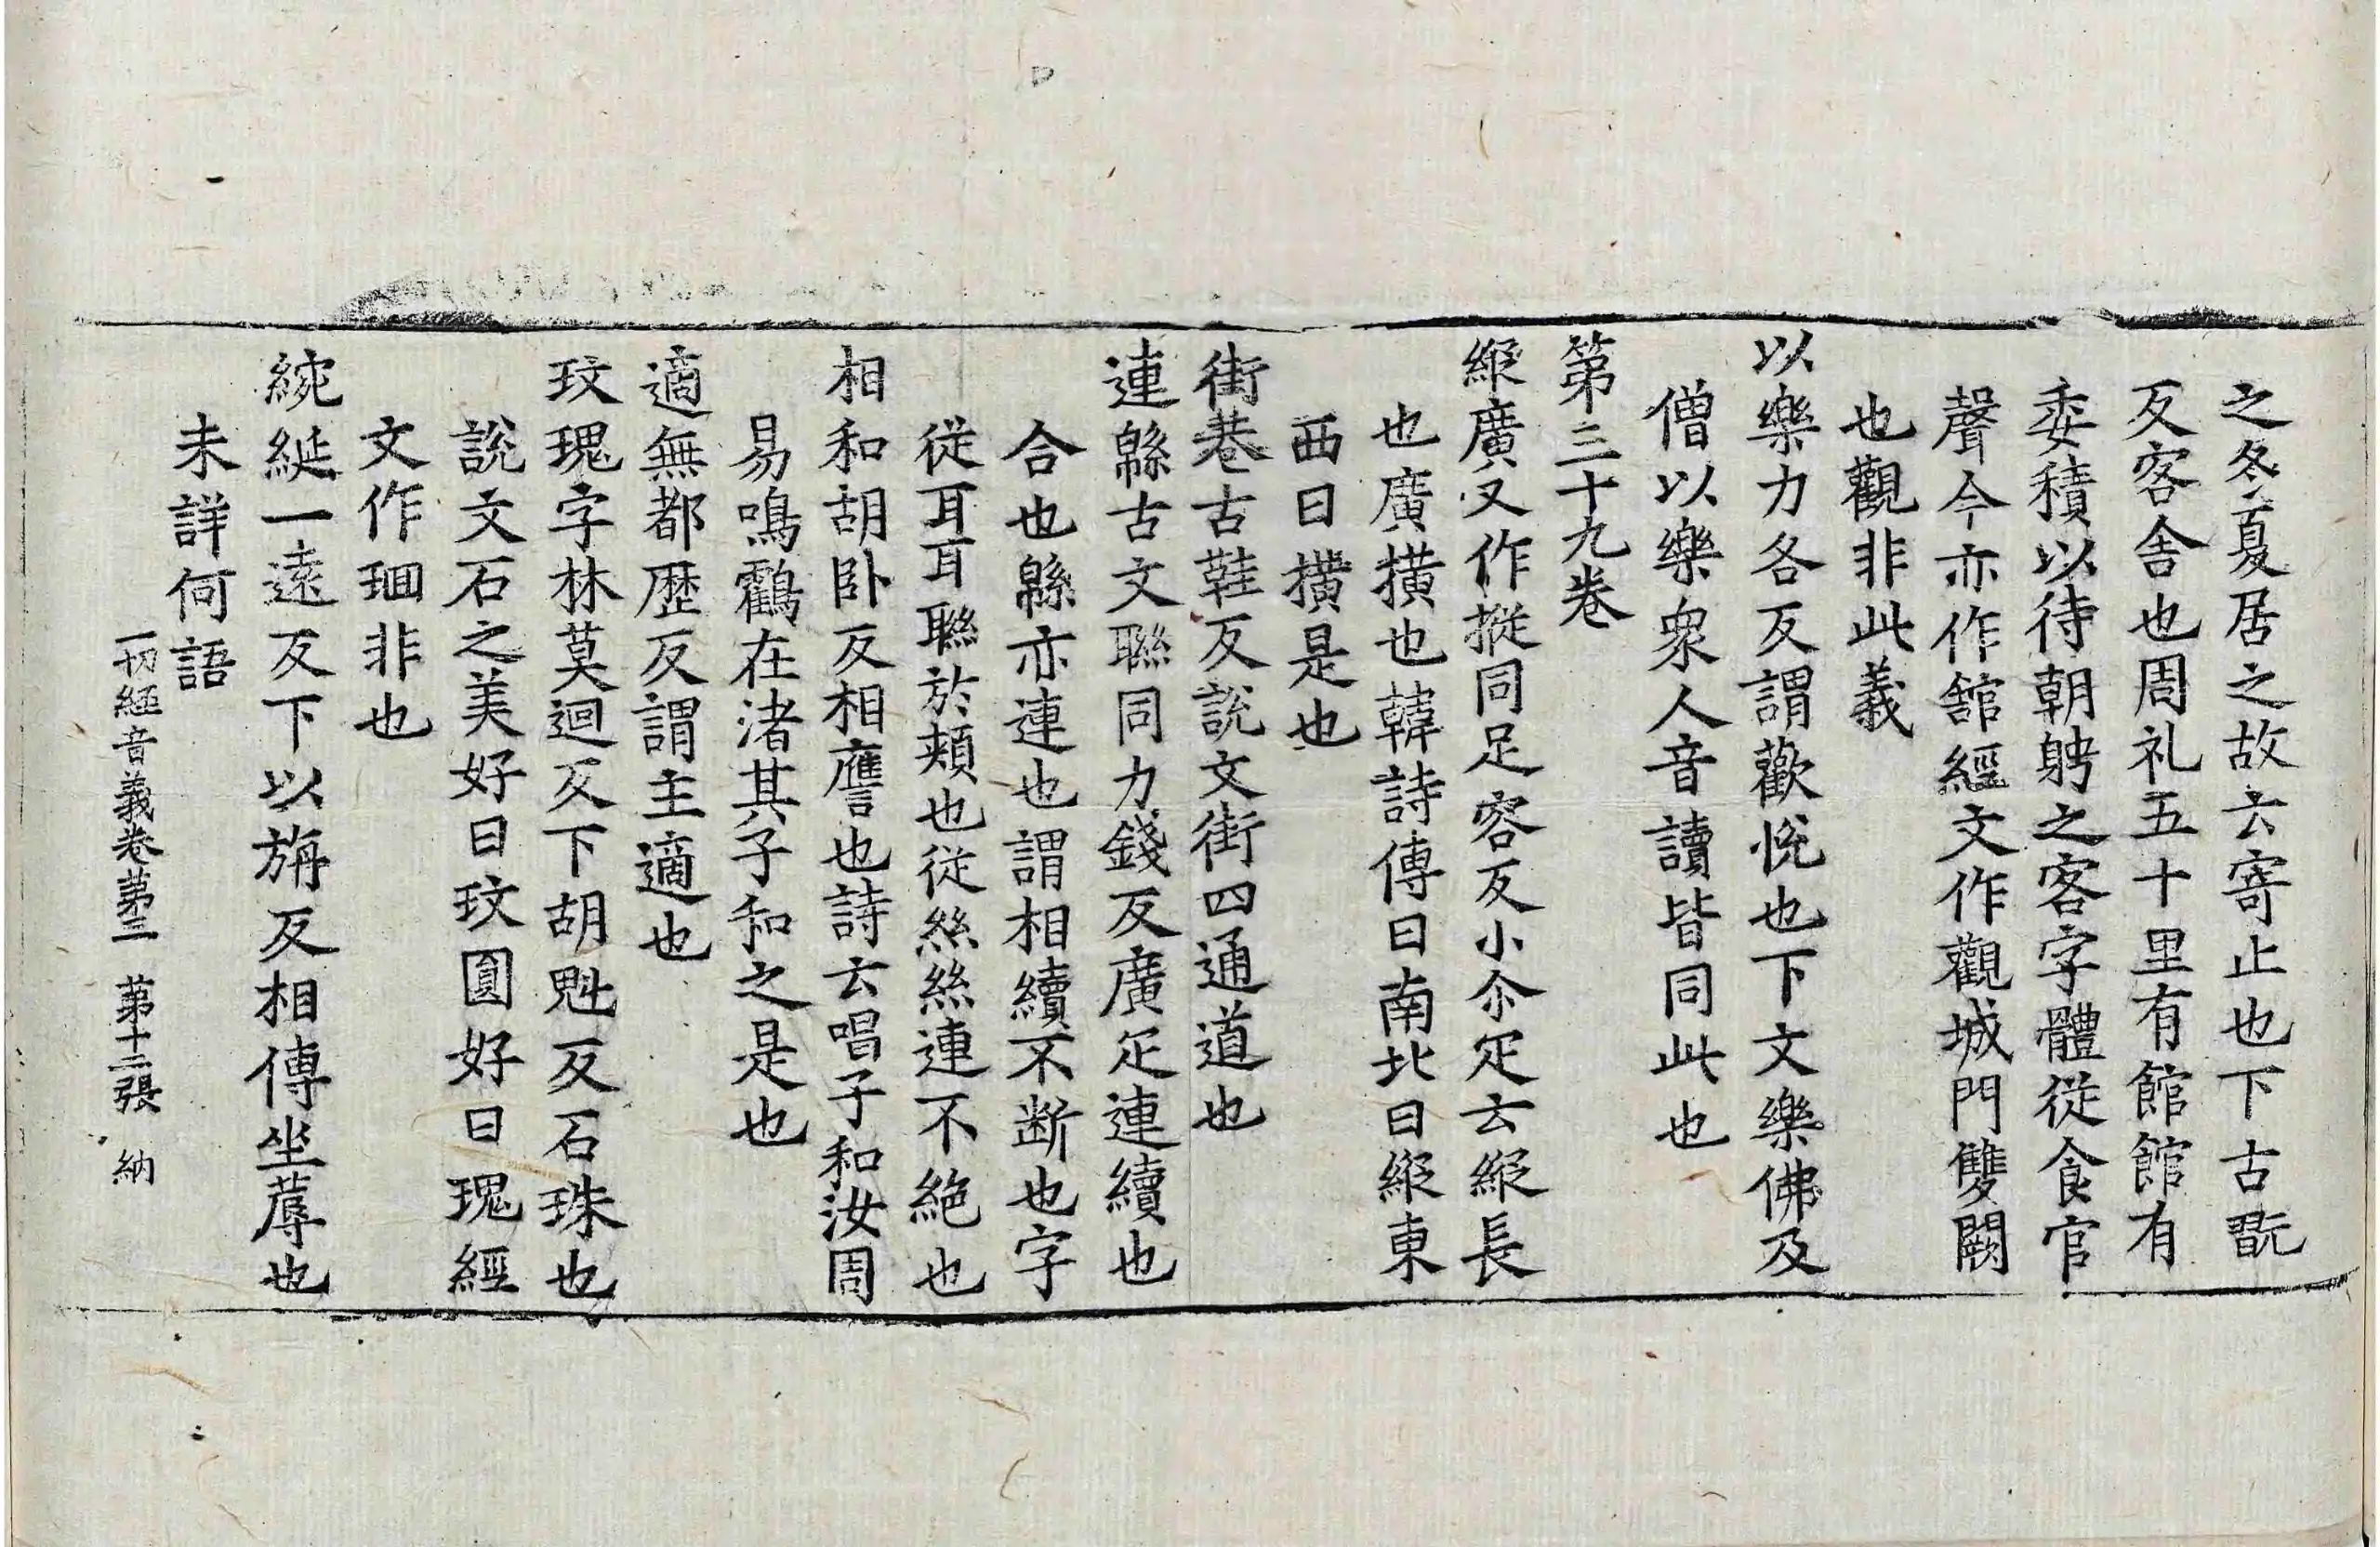 之冬夏居之故云寄止也下古翫
反客舍也周礼五十里有館館有
委積以待朝聘之客字體從食官
聲今亦作舘經文作觀城門雙闕
也觀非此義
以樂力各反謂歡悅也下文樂佛及
僧以樂衆人音讀皆同此也
第三十九卷
縱廣又作摐同足容反小尒疋云縱長
也廣撗也韓詩傳曰南北曰縱東
西曰撗是也
街巷古鞋反説文街四通道也
連緜古文聯同力錢反廣疋連續也
合也緜亦連也謂相續不断也字
從耳耳聯於頰也從絲絲連不絶也
相和胡卧反相譍也詩云唱子和汝周
易鳴鸖在渚其子和之是也
適無都歷反謂主適也
玫瑰字林莫迴反下胡魁反石珠也
説文石之美好曰玫圓好曰瑰經
文作㻁非也
綩綖一遠反下以旃反相傳坐蓐也
未詳何語
一切經音義卷第三 第十二張 納